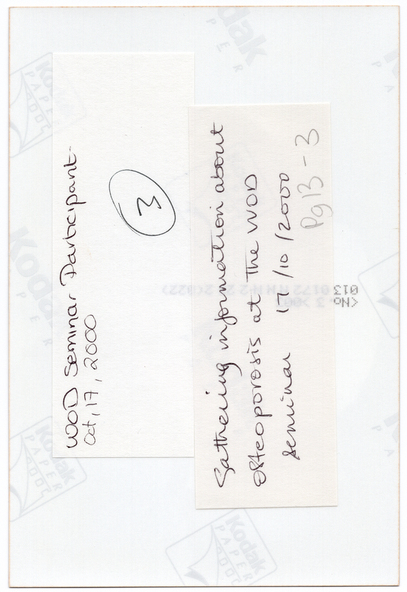 WOD Seminar Participant.
Oct, 17, 2000
3
Gathering information about
osteoporosis at the WOD
seminar 17/10/2000
Pg 13-3
Kodak
PAPER